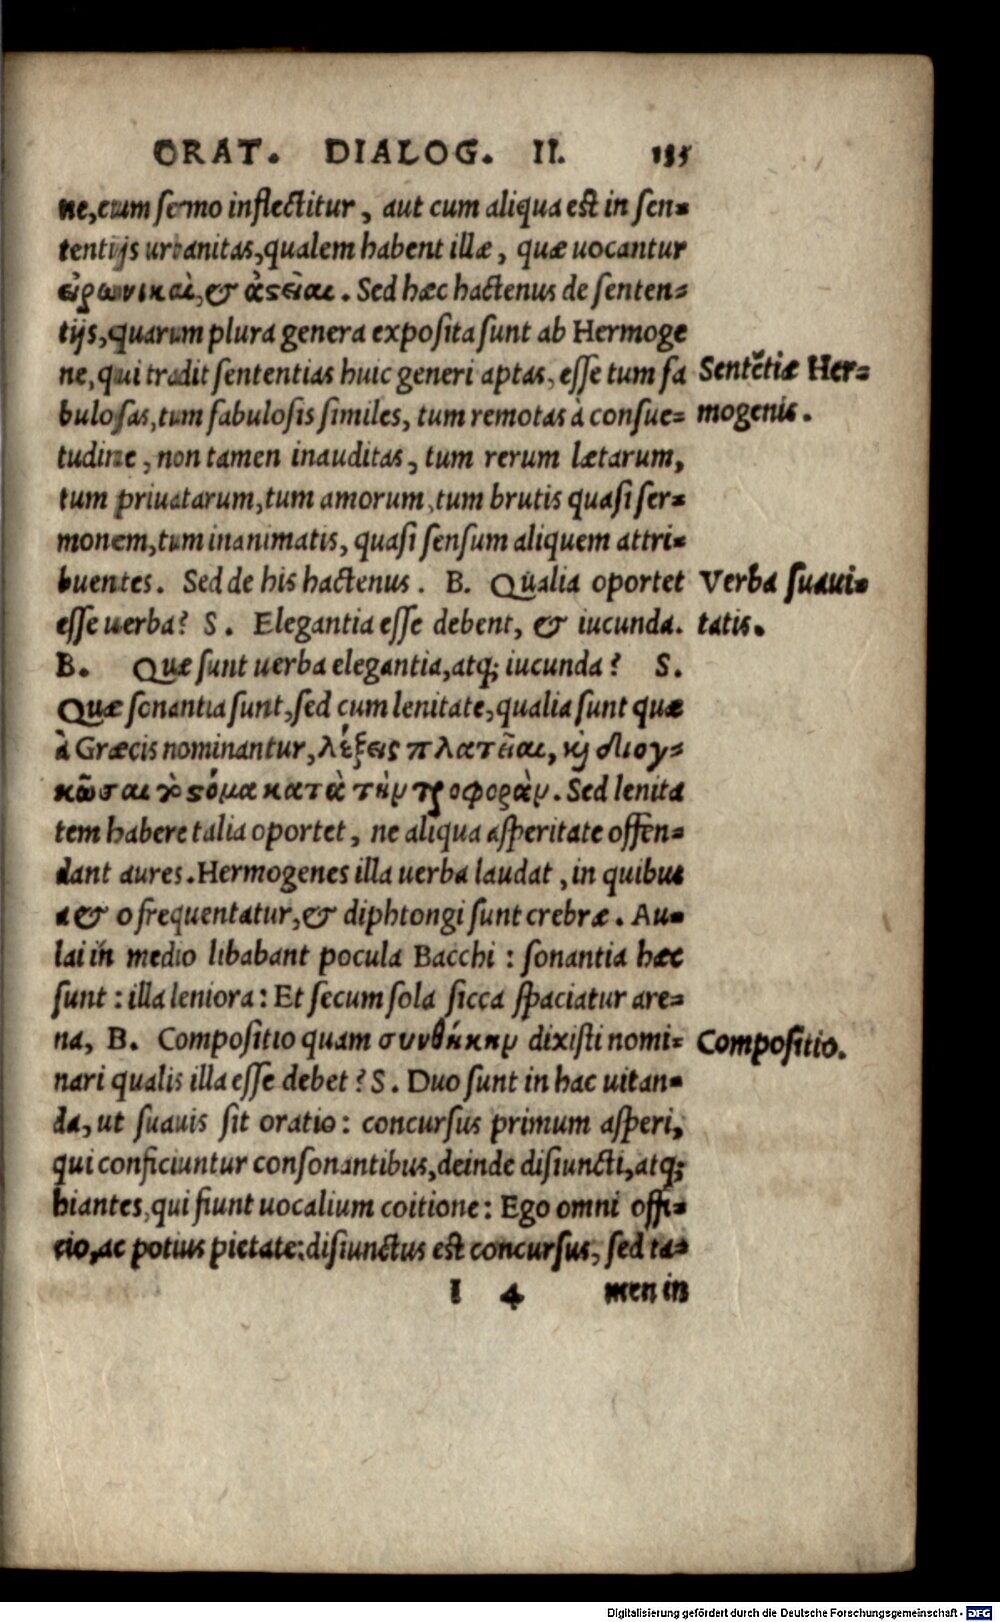 ORAT. DIALOG. II. 135
ne, cum sermo inflectitur, aut cum aliqua est in sen=
tentijs urbanitas, qualem habent illæ, quæ uocantur
εἰρωνικαὶ, & ἀςεῖαι. Sed hæc hactenus de senten=
tijs, quarum plura genera exposita sunt ab Hermoge
ne, qui tradit sententias huic generi aptas, esse tum fa
Sentẽtiæ Her=
bulosas, tum fabulosis similes, tum remotas à consue=
mogenis.
tudine, non tamen inauditas, tum rerum lætarum,
tum priuatarum, tum amorum, tum brutis quasi ser=
monem, tum inanimatis, quasi sensum aliquem attri=
buentes. Sed de his hactenus. B. Qualia oportet
Verba suaui=
esse uerba? S. Elegantia esse debent, & iucunda.
tatis.
B. Quæ sunt uerba elegantia, atq; iucunda? S.
Quæ sonantia sunt, sed cum lenitate, qualia sunt quæ
à Græcis nominantur, λέξεις πλατεῖαι, κỳ διογ=
κῶσαι τὸ ςόμα κατὰ τὴν προφορὰν. Sed lenita
tem habere talia oportet, ne aliqua asperitate offen=
dant aures. Hermogenes illa uerba laudat, in quibus
a & o frequentatur, & diphtongi sunt crebræ. Au=
lai in medio libabant pocula Bacchi: sonantia hæc
sunt: illa leniora: Et secum sola sicca spaciatur are=
na, B. Compositio quam συνθήκην dixisti nomi=
Compositio.
nari qualis illa esse debet? S. Duo sunt in hac uitan=
da, ut suauis sit oratio: concursus primum asperi,
qui conficiuntur consonantibus, deinde disiuncti, atq;
hiantes, qui fiunt uocalium coitione: Ego omni offi=
cio, ac potius pietate: disiunctus est concursus, sed ta=
I 4 men in
Digitalisierung gefördert durch die Deutsche Forschungsgemeinschaft - DFG